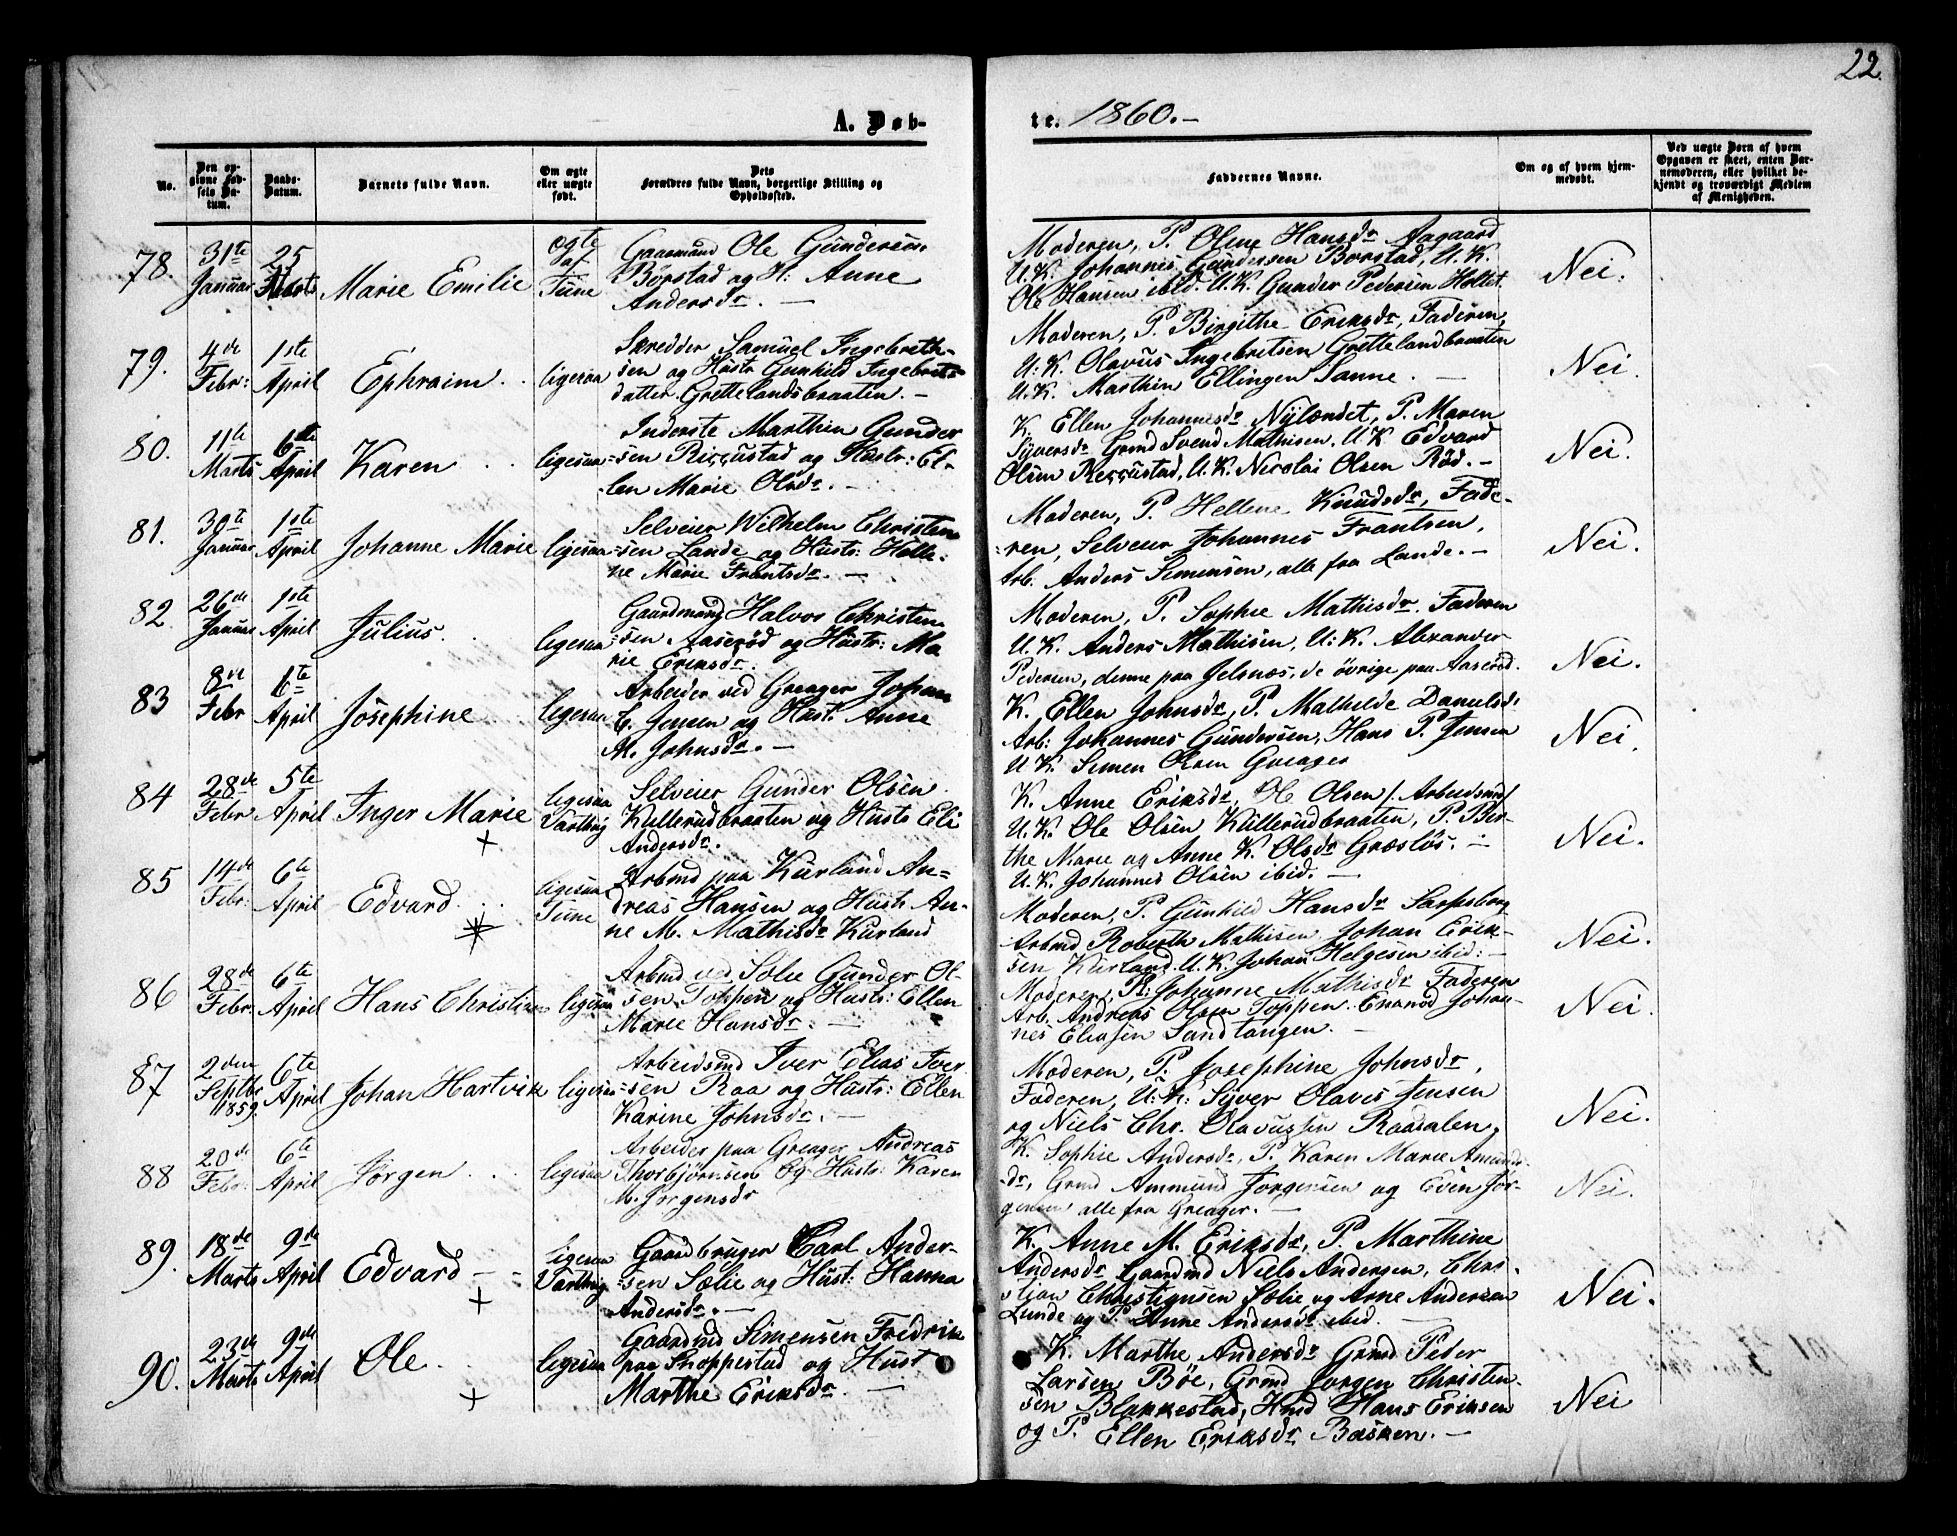 22.
A. Døb-
te. 1860.-
No.
Den op-
givne Fød-
sels Da-
tum.
Daabs-
Datum.
Barnets fulde Navn.
Om ægte
eller uægte
født.
Dets
Forældres fulde Navn, borgerlige Stilling og
Opholdssted.
Faddernes Navne.
Om og af hvem hjem-
medøbt.
Ved uægte Børn af hvem
Opgaven er skeet, enten Bar-
nemoderen, eller hvilket be-
kjendt og troværdigt Medlem
af Menigheden.
78.
31te
Januar
25
Marts
Marie Emilie
ægte
Tune
Gaarmand Ole Gundersen
Börstad og H: Anne
Andersdr. —
Moderen, P. Oline Hansdr Aagaard
U.K. Johannes Gundersen Borstad, U.K.
Ole Hansen ibid. U.K. Gunder Pedersen Holtet
Nei.
79.
4de
Febr:
1ste
April
Ephraim . .
ligesaa
Skredder Samuel Ingebreth-
sen og Hustr Gunhild Ingebrits
datter Grettelandsbraaten. —
Moderen, P. Birgithe Eriksdr, Faderen,
U.K. Olavus Ingebritsen Grettelandbraaten
U.K. Marthin Ellingen Sanne. —
Nei.
80.
11te
Marts
6te
April
Karen . .
ligesaa
Inderste Marthin Gunder
=sen Reccustad og Hustr: El-
len Marie Olsdr. —
K. Ellen Johannesdr Nylændet, P. Maren
Syversdr Grmd Svend Mathisen, U.K Edvard
Olsen Reccustad, U.K. Nicolai Olsen Röd. —
Nei.
81.
30te
Januar
1ste
April
Johanne Marie
ligesaa
Selveier Wilhelm Christen
=sen Lande og Hustr: Helle-
ne Marie Frantsdr. —
Moderen, P. Hellene Knudsdr, Fade-
=ren, Selveier Johannes Frantsen,
Arb. Anders Simensen, alle fra Lande. —
Nei.
82.
26de
Januar
1ste
April
Julius. .
ligesaa
Gaardmand Halvor Christen
=sen Aaserød og Hustr: Ma
rie Eriksdr.
Moderen, P. Sophie Mathisdr. Faderen
U.K. Anders Mathisen, U:K. Alexander
Pedersen, denne paa Jelsnæs, de övrige paa Aaserød.
Nei.
83
8de
Febr
6te
April
Josephine
ligesaa
Arbeider ved Greager Johan
C. Jensen og Hust: Anne
M. Johnsdr. —
K. Ellen Johnsdr, P. Mathilde Danielsd:
Arb: Johannes Gundersen, Hans P. Jensen
U K. Simen Olsen Greager
Nei.
84
28de
Febr
5te
April
Inger Marie
+
ligesaa
Varteig
Selveier Gunder Olsen
Kullerudbraaten og Hustr Eli
Andersdr.
K. Anne Eriksdr, Ole Olsen /: Arbeidsmd/
U.K. Ole Olsen Kullerudbraaten, P. Ber-
the Marie og Anne K. Olsdr Græslös. —
U.K. Johannes Olsen ibid. —
Nei.
85
14de
Febr:
6te
April
Edvard . .
ligesaa
Tune
Arbmd paa Kurland An=
dreas Hansen og Hustr An-
ne M. Mathisdr Kurland
Moderen, P. Gunhild Hansdr Sarpsborg
Arbmd Roberth Mathisen Johan Erik-
sen Kurland U.K. Johan Helgesen ibid: —
Nei.
86
28de
Febr.
6te
April
Hans Christian
ligesaa
Arbmd ved Solie Gunder Ol-
sen Toppen og Hustr: Ellen
Marie Hansdr. —
Moderen, P: Johanne Mathisdr Faderen
Arb. Andreas Olsen Toppen. Johan-
nes Eliasen Sandtangen. —
Nei.
87
2den
Septbr
1859.
6te
April
Johan Hartvik
ligesaa
Arbeidsmd Iver Elias Iver
=sen Raa og Hustr: Ellen
Karine Johnsdr. —
Moderen, P. Josephine Johnsdr,
Faderen, U:K: Syver Olaves Jensen
og Niels Chr. Olavussen Raadalen.
Nei.
88
20de
Febr:
6te
April
Jörgen . .
ligesaa
Arbeider paa Greager Andreas
Thorbjörnsen Og Hustr: Karen
M. Jörgensdr
K. Sophie Andersdr, P. Karen Marie Amunds-
dr, Grmd Ammund Jorgensen og Even Jör-
gensen alle fra Greager. —
Nei.
89.
18de
Marts
9de
April
Edvard — -
+
ligesaa
Varteig
Gaardbruger Carl Ander-
=sen Sælie og Hust: Hanna
Andersdr. —
K. Anne M. Eriksdr, P. Marthine
Andersdr Gaardmd Niels Andersen, Chri-
stian Christiansen Solie og Arne Andersen
Lunde og P. Anne Andersdr ibid. —
Nei.
90.
23de
Marts
9de
April
Ole . .
+
ligesaa
Gaardmd Simensen Fredrik
paa Snoppestad og Hust
Marthe Eriksdr. —
K. Marthe Andersdr Grmd Peder
Larsen Böe, Grmd Jorgen Christen-
sen Blakkestad, Hmd Hans Eriksen
og P. Ellen Eriksdr Basken. —
Nei